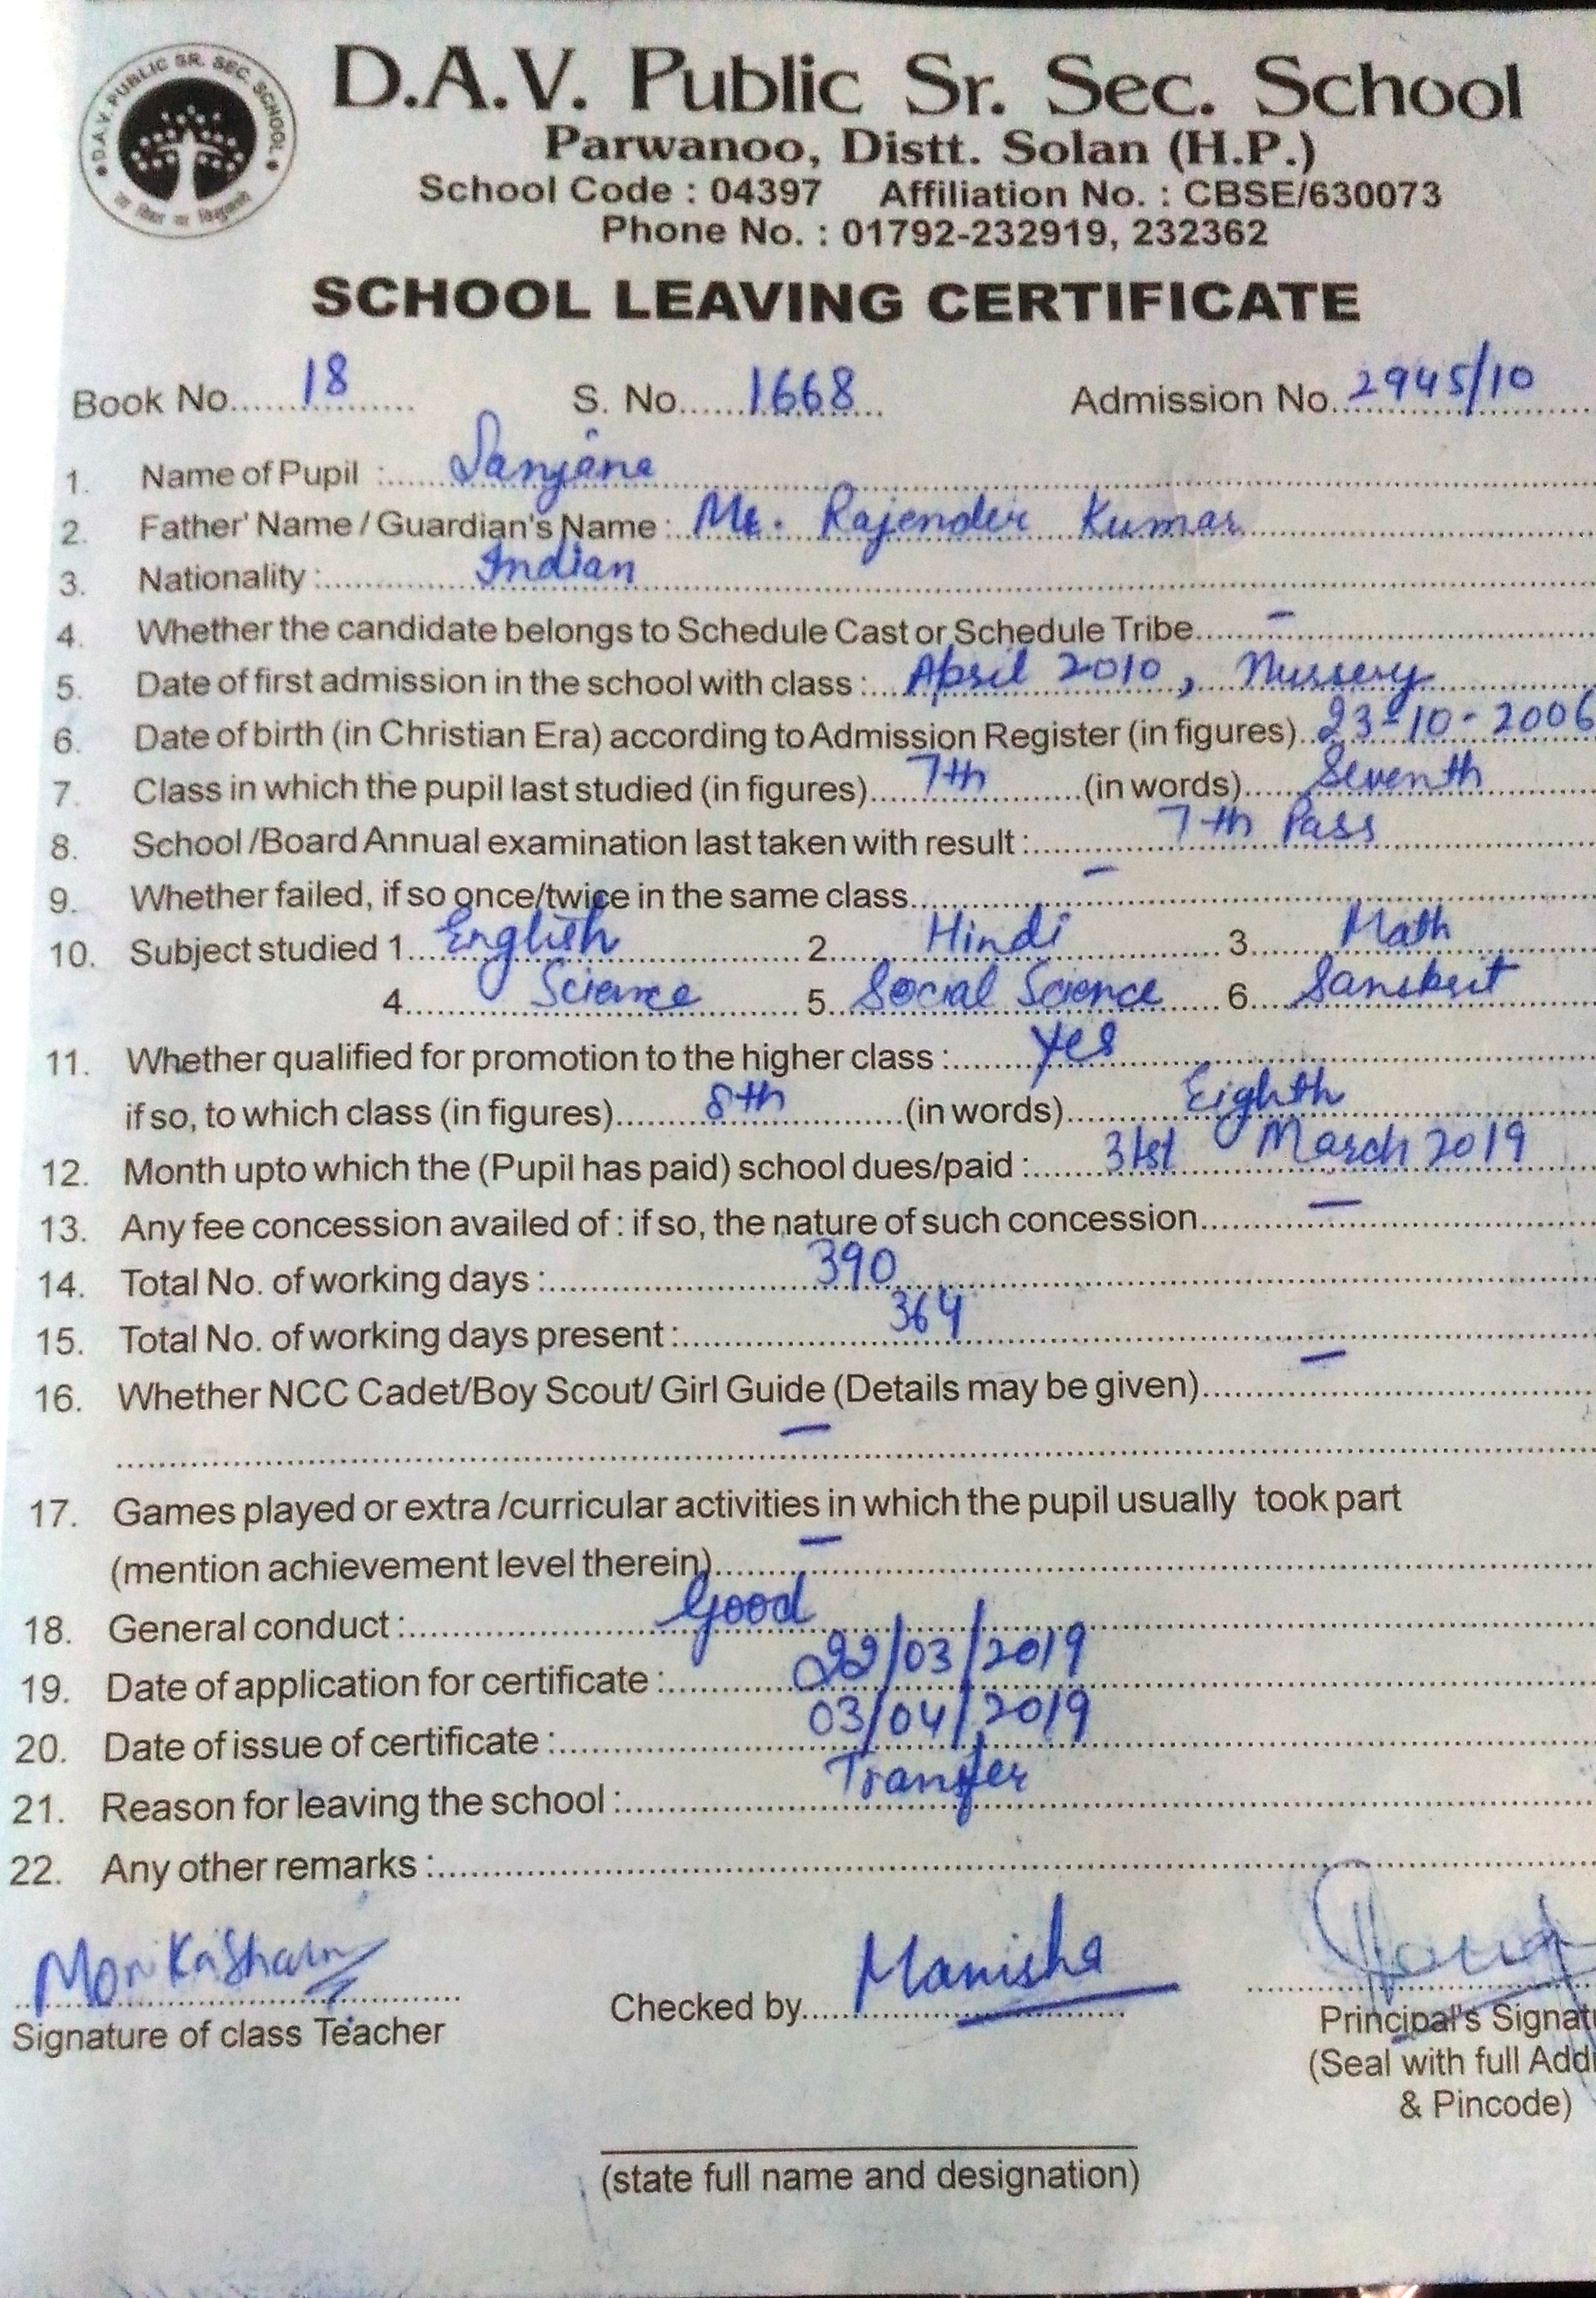 D.A.V. PUBLIC SR. SEC. SCHOOL
D.A.V. Public Sr. Sec. School
Parwanoo, Distt. Solan (H.P.)
School Code : 04397 Affiliation No. : CBSE/630073
Phone No. : 01792-232919, 232362
SCHOOL LEAVING CERTIFICATE
Book No. 18 S. No. 1668 Admission No. 2945/10
1. Name of Pupil : Sanjana
2. Father' Name / Guardian's Name : Mr. Rajender Kumar
3. Nationality : Indian
4. Whether the candidate belongs to Schedule Cast or Schedule Tribe –
5. Date of first admission in the school with class : April 2010, Nursery
6. Date of birth (in Christian Era) according to Admission Register (in figures) 23-10-2006
7. Class in which the pupil last studied (in figures) 7th (in words) Seventh
8. School /Board Annual examination last taken with result : 7th Pass
9. Whether failed, if so once/twice in the same class –
10. Subject studied 1. English 2. Hindi 3. Math
4. Science 5. Social Science 6. Sanskrit
11. Whether qualified for promotion to the higher class : Yes
if so, to which class (in figures) 8th (in words) Eighth
12. Month upto which the (Pupil has paid) school dues/paid : 31st March 2019
13. Any fee concession availed of : if so, the nature of such concession –
14. Total No. of working days : 390
15. Total No. of working days present : 364
16. Whether NCC Cadet/Boy Scout/ Girl Guide (Details may be given) –
–
17. Games played or extra /curricular activities in which the pupil usually took part
(mention achievement level therein) –
18. General conduct : Good
19. Date of application for certificate : 22/03/2019
20. Date of issue of certificate : 03/04/2019
21. Reason for leaving the school : Transfer
22. Any other remarks :
Monika Sharma
Signature of class Teacher
Checked by Manisha
Principal's Signat
(Seal with full Add
& Pincode)
(state full name and designation)